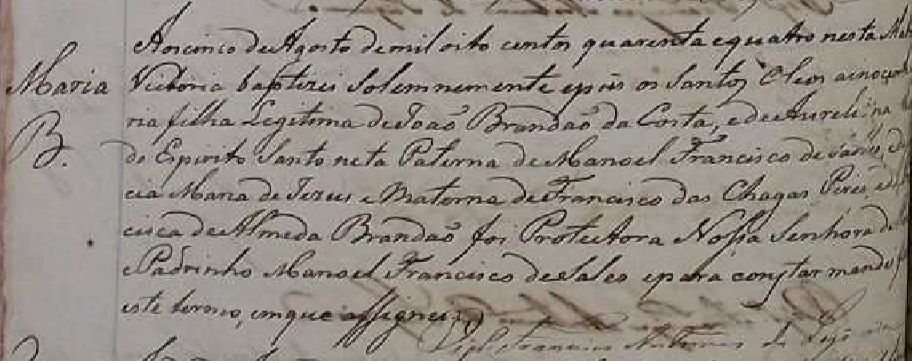 Maria
B.
Aos cinco de Agosto de mil oito centos quarenta e quatro nesta
Victoria baptizei Solemnemente e pús os Santos Oleos a inocente
ria filha Legitima de Joaõ Brandaõ da Costa, e de Aurelina
do Espirito Santo neta Paterna de Manoel Francisco de
cia Maria de Jezus e Materna de Francisco das Chagas Peres, e de
cisca de Almeda Brandaõ foi Protectora Nossa Senhora de
e Padrinho Manoel Francisco de Sales e para constar mandei
este termo, em que assignei
Francisco Antunes de